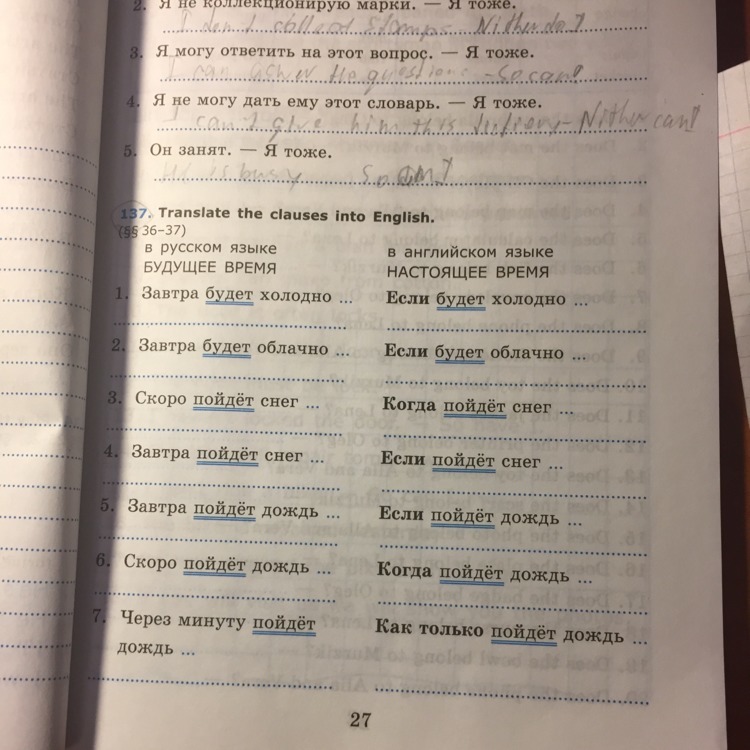 2. Я не коллекционирую марки. — Я тоже.
I don't collect stamps Nither do I
3. Я могу ответить на этот вопрос. — Я тоже.
I can the question -So can I
4. Я не могу дать ему этот словарь. — Я тоже.
I can't give him this -Nither can I
5. Он занят. — Я тоже.
He is busy So am I
137. Translate the clauses into English.
(§§ 36–37)
в русском языке в английском языке
БУДУЩЕЕ ВРЕМЯ НАСТОЯЩЕЕ ВРЕМЯ
1. Завтра будет холодно ... Если будет холодно ...
2. Завтра будет облачно ... Если будет облачно ...
3. Скоро пойдёт снег ... Когда пойдёт снег ...
4. Завтра пойдёт снег ... Если пойдёт снег ...
5. Завтра пойдёт дождь ... Если пойдёт дождь ...
6. Скоро пойдёт дождь ... Когда пойдёт дождь ...
7. Через минуту пойдёт Как только пойдёт дождь ...
дождь ...
27